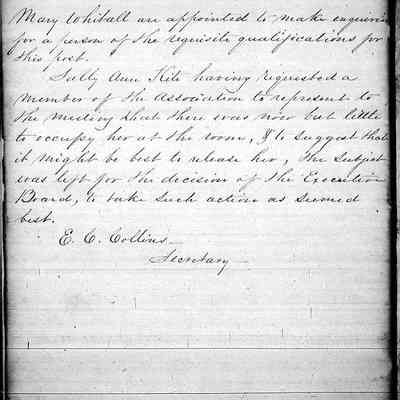 Mary Whitall are appointed to make enquiries
for a person of the requisite qualifications for
this post.
Sally Ann Kite having requested a
member of the Association to represent to
the meeting that there was now but little
to occupy her at the room, & to suggest that
it might be best to release her, the subject
was left for the decision of the Executive
Board, to take such action as seemed
best.
E. C. Collins
Secretary